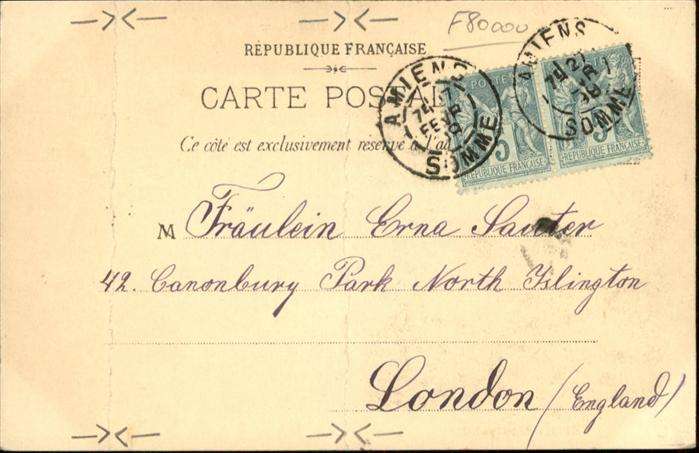 F80000
RÉPUBLIQUE FRANÇAISE
CARTE POSTALE
Ce côté est exclusivement réservé à l'adresse
AMIENS
7E
FEVR
SOMME
AMIENS
7E
SOMME
POSTES
5
REPUBLIQUE FRANÇAISE
5
REPUBLIQUE FRANÇAISE
M Fräulein Erna Sauter
42. Canonbury Park North Islington
London (England)